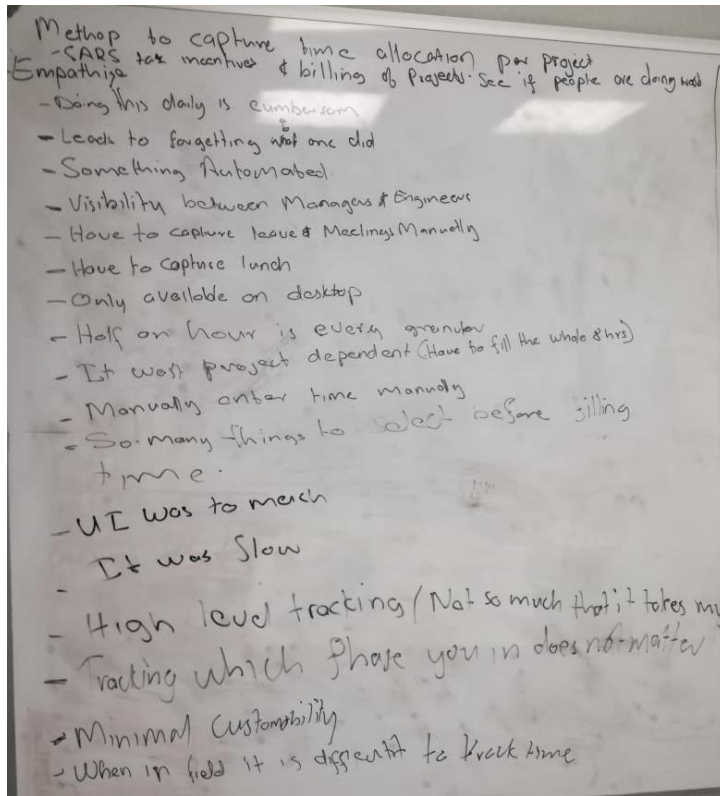 Methop to capture time allocation per project
-SARS tax incentives & billing of Projects. See if people are doing work
Empathise
- Doing this daily is cumbersom
- Leads to forgetting what one did
- Something Automated
- Visibility between Managers & Engineers
- Have to capture leave & Meetings Manually
- Have to capture lunch
- Only available on desktop
- Half an hour is every granular
- It wasn't project dependent (Have to fill the whole 8hrs)
- Manually enter time manually
- So many things to select before filling
time.
- UI was to mench
- It was Slow
- High level tracking / Not so much that it takes my
- Tracking which phase you in does not matter
- Minimal Customability
- When in field it is difficult to track time